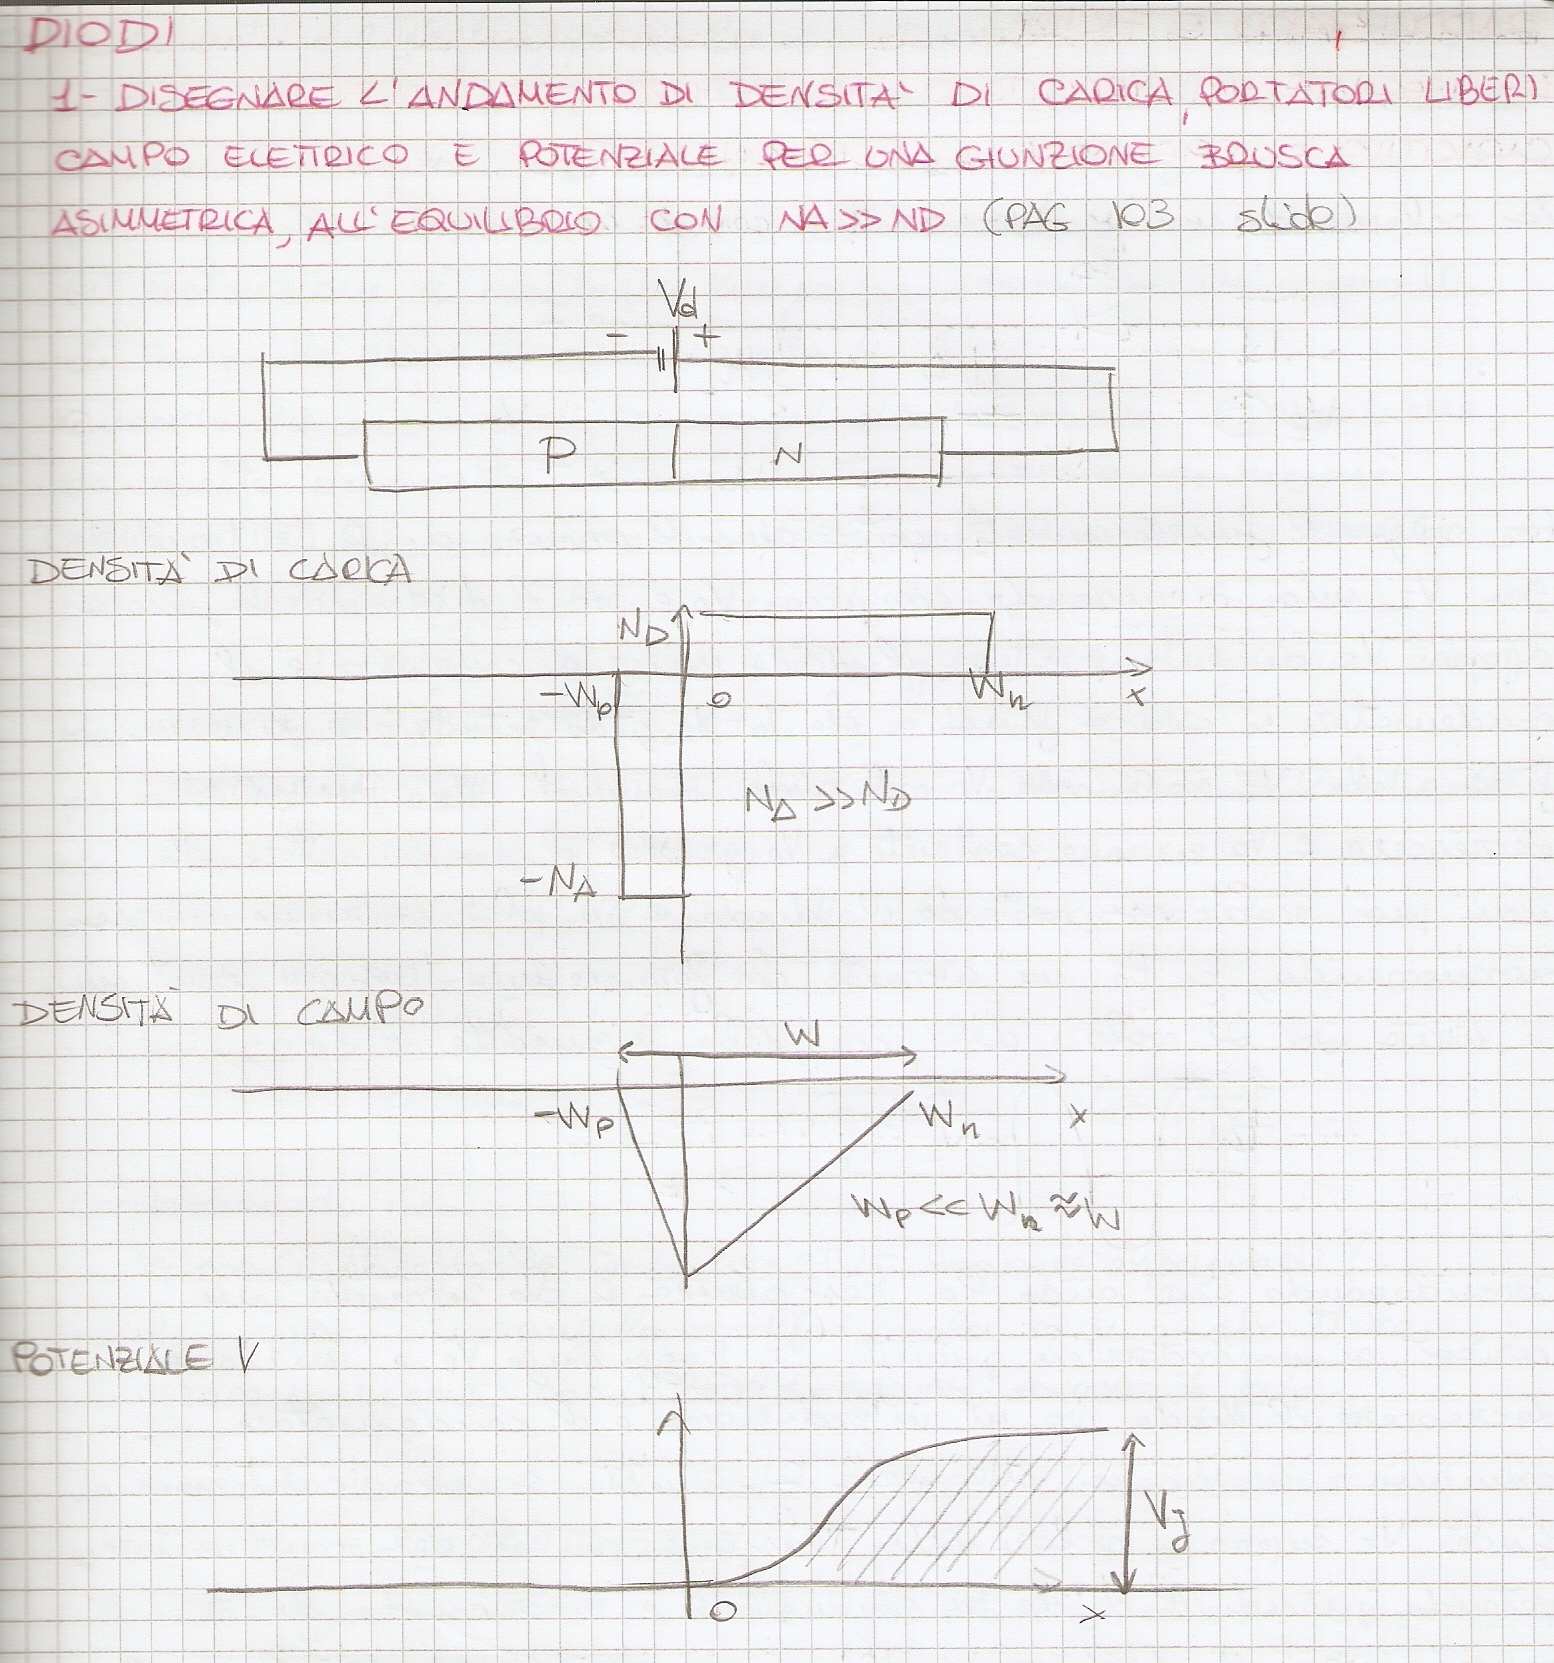 DIODI
1- DISEGNARE L'ANDAMENTO DI DENSITA' DI CARICA, PORTATORI LIBERI
CAMPO ELETTRICO E POTENZIALE PER UNA GIUNZIONE BRUSCA
ASIMMETRICA, ALL'EQUILIBRIO CON NA>>ND (PAG 103 slide)
Vd
- +
P N
DENSITA' DI CARICA
ND
-Wp 0 Wn x
NA >> ND
-NA
DENSITA' DI CAMPO
W
-Wp Wn x
Wp << Wn ≈ W
POTENZIALE V
VJ
0 x